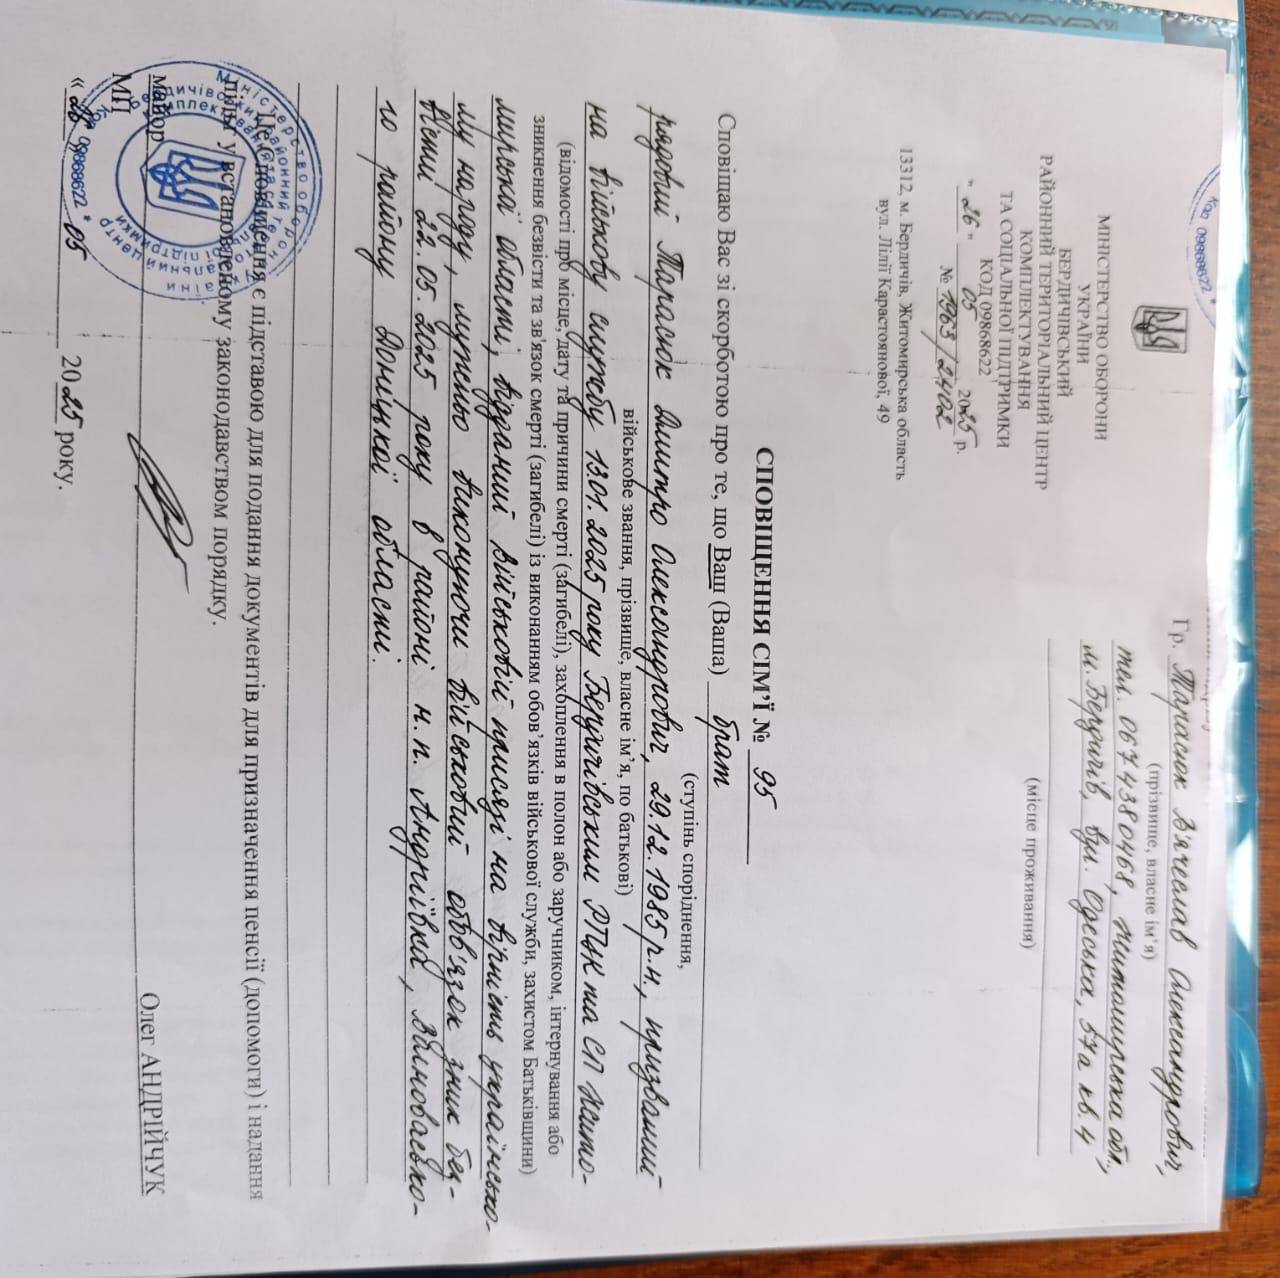 МІНІСТЕРСТВО ОБОРОНИ
УКРАЇНИ
БЕРДИЧІВСЬКИЙ
РАЙОННИЙ ТЕРИТОРІАЛЬНИЙ ЦЕНТР
КОМПЛЕКТУВАННЯ
ТА СОЦІАЛЬНОЇ ПІДТРИМКИ
КОД 09868622
" 26 " 05 2025 р.
№ 1963/2402
13312, м. Бердичів, Житомирська область
вул. Лілії Карастоянової, 49
Код 09868622 *
Гр. Панасюк Вячеслав Олександрович,
(прізвище, власне ім'я)
тел. 0674380468, Житомирська обл.,
м. Бердичів, вул. Одеська, 57а кв. 4
(місце проживання)
СПОВІЩЕННЯ СІМ'Ї № 95
Сповіщаю Вас зі скорботою про те, що Ваш (Ваша) брат
(ступінь споріднення,
рядовий Панасюк Дмитро Олександрович, 29.12.1985 р.н., призваний
військове звання, прізвище, власне ім'я, по батькові)
на військову службу 13.01.2025 року Бердичівським РТЦК та СП Жито-
(відомості про місце, дату та причини смерті (загибелі), захоплення в полон або заручником, інтернування або
зникнення безвісти та зв'язок смерті (загибелі) із виконанням обов'язків військової служби, захистом Батьківщини)
мирської області, відданий військовій присязі на вірність українсько-
му народу, мужньо виконуючи військовий обов'язок зник без-
вісти 22.05.2025 року в районі н.п. Андріївка, Волновасько-
го району Донецької області.
Це сповіщення є підставою для подання документів для призначення пенсії (допомоги) і надання
пільг у встановленому законодавством порядку.
майор Олег АНДРІЙЧУК
МП
« 26 » 05 2025 року.
Міністерство оборони України
09868622 *